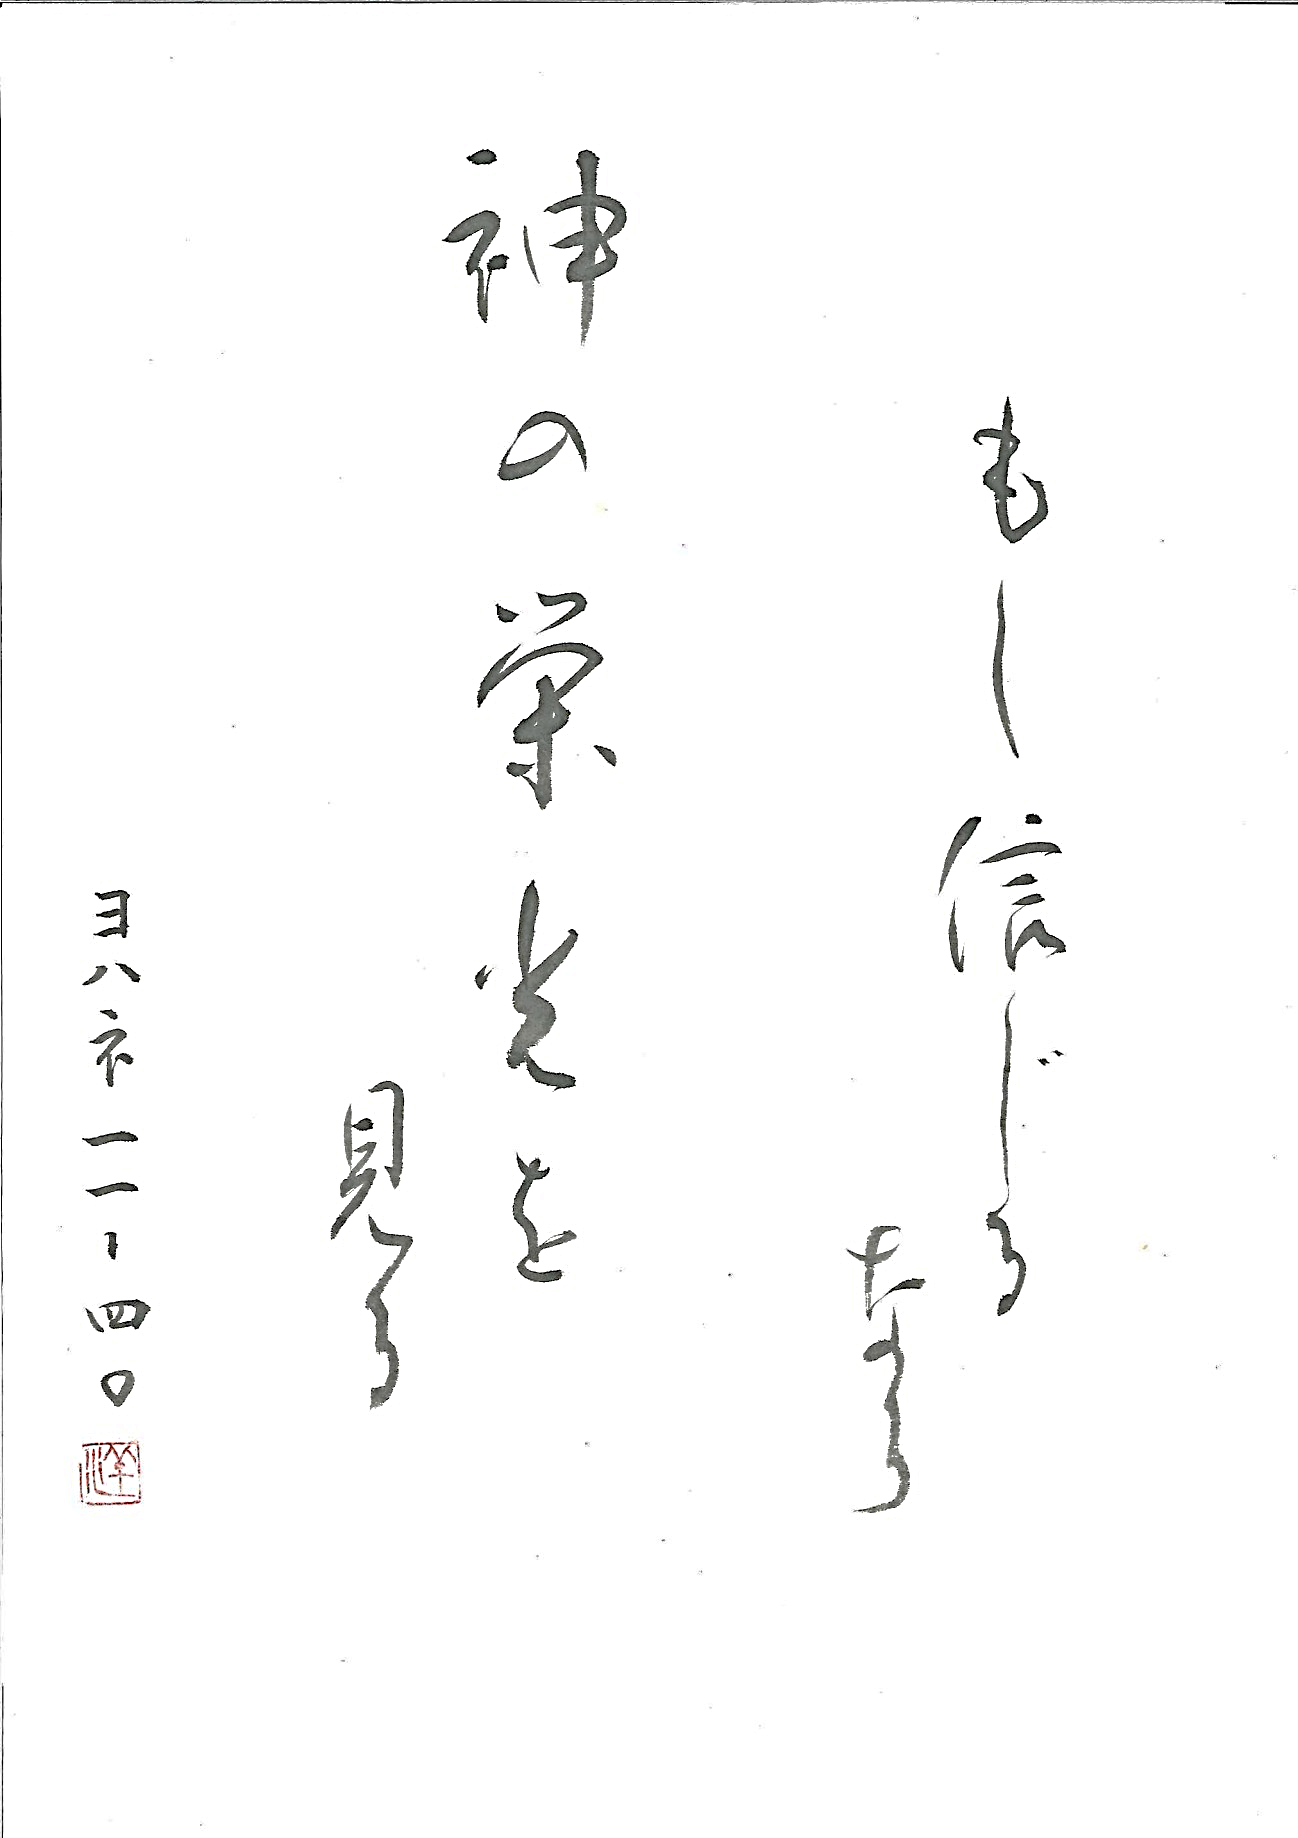 もし信じる
なら
神の栄光を
見る
ヨハネ一一ー四〇